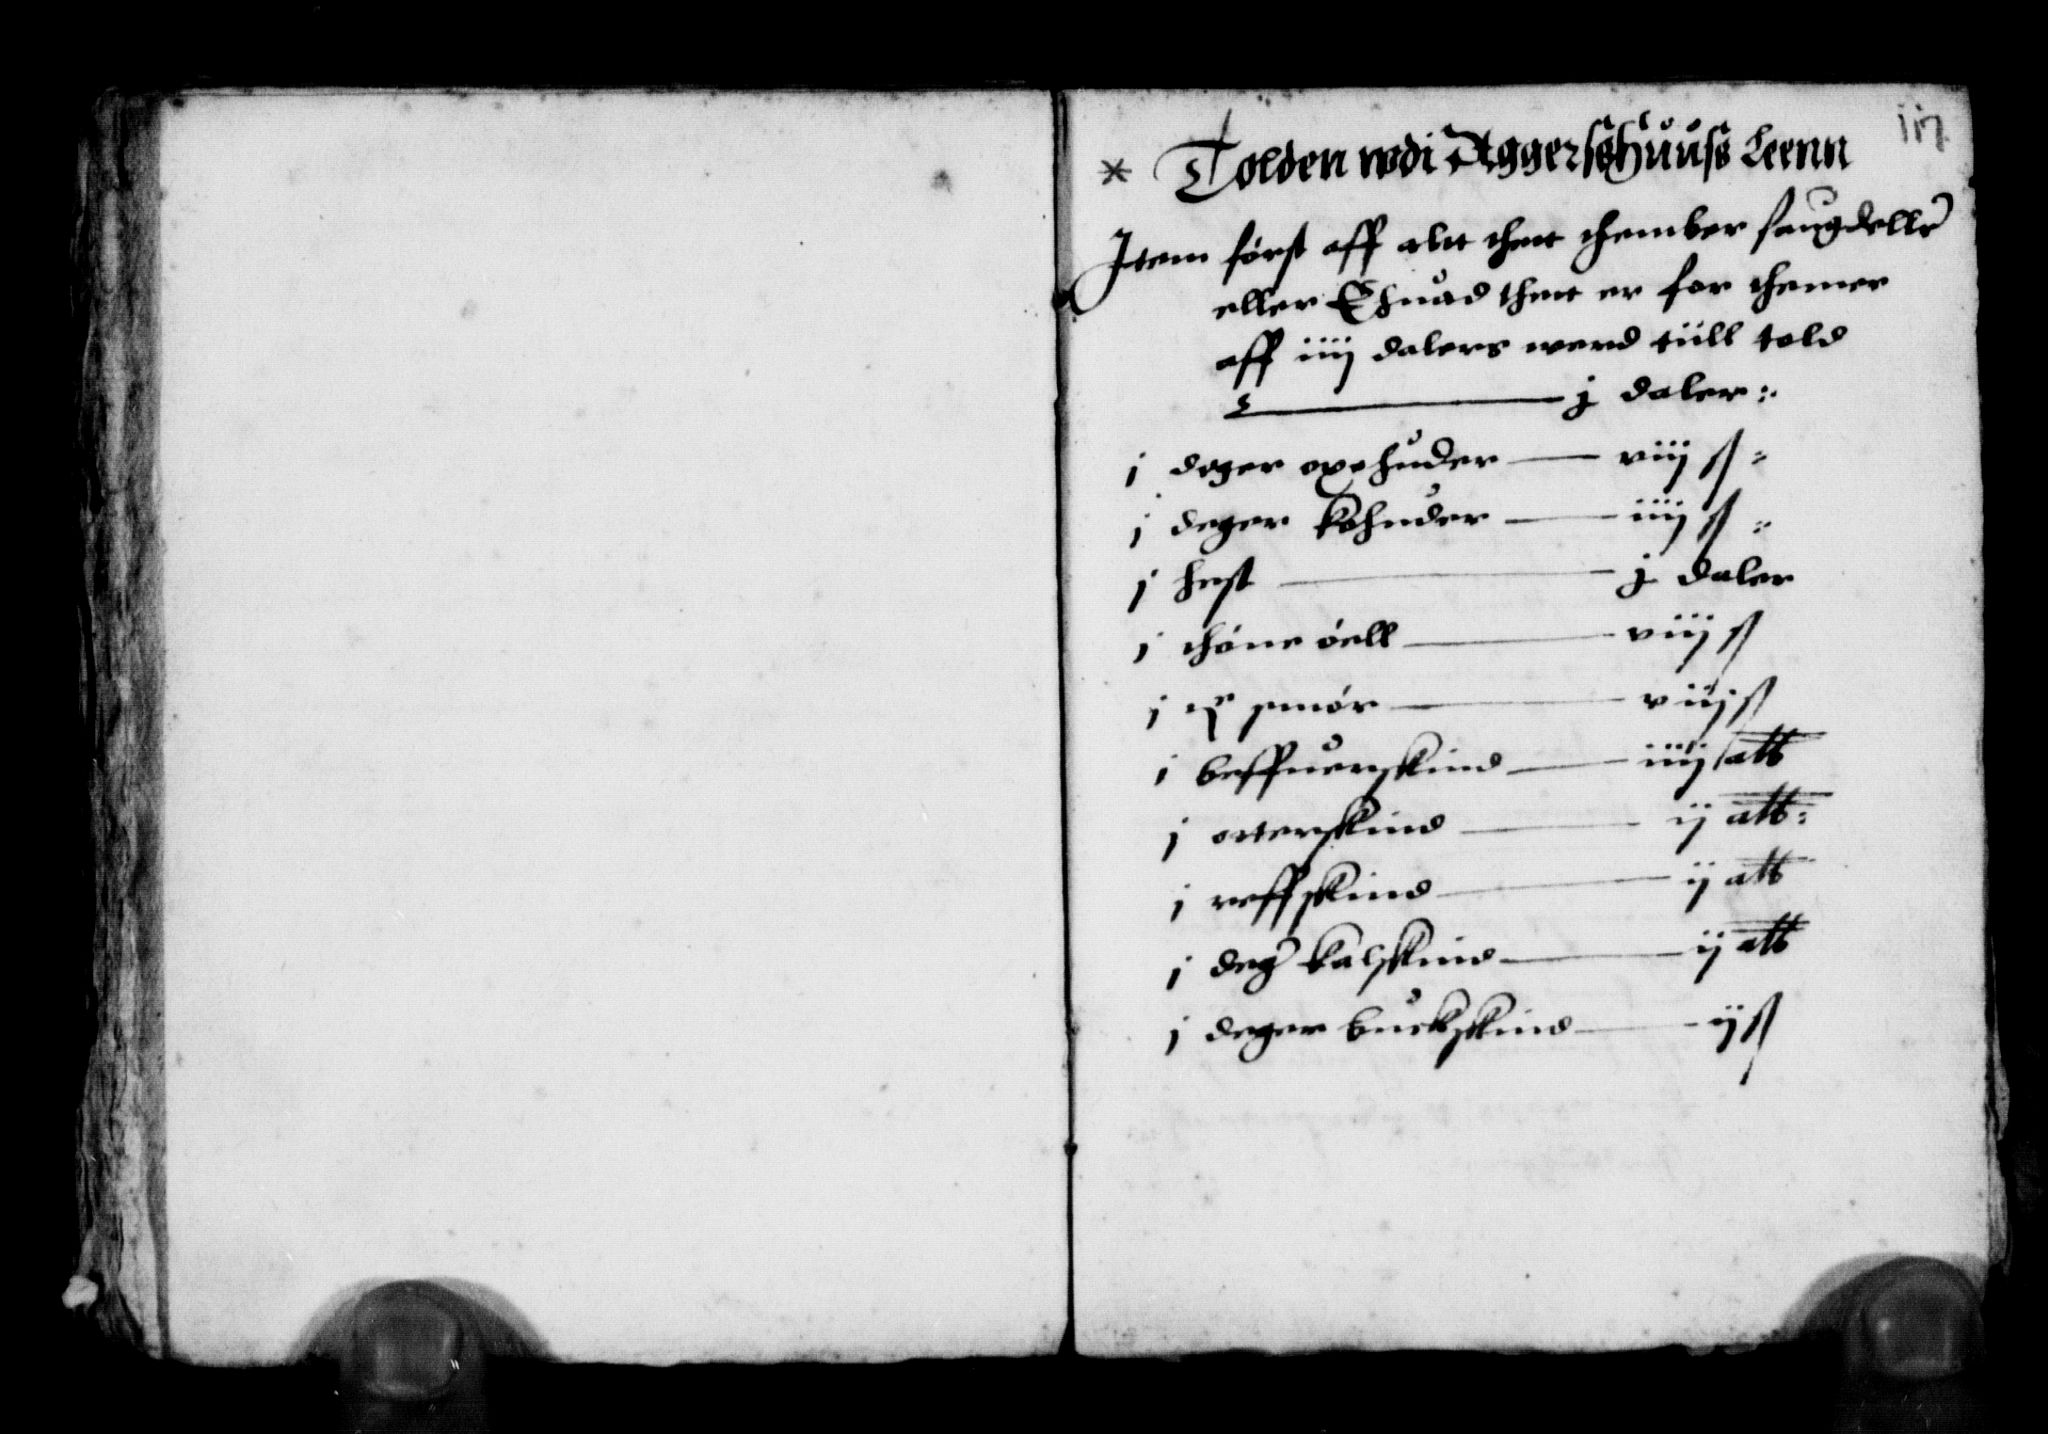 117
* Tolden wdi Aggersshuuss Leenn
Item først aff alt thet thember saugdeller
eller Ehuad thet er for themer
aff iiij dalers werd tiill told
j daler :
j deger oxehuder — viij ß
j deger køhuder — iiij ß
j hest — j daler
j thøne øell — viij ß
j smør — viij ß
j beffuerskind — iiij alb
j otterskind — ij alb
j reffskind — ij alb
j deger kalskind — ij alb
j deger buckskind — ij ß